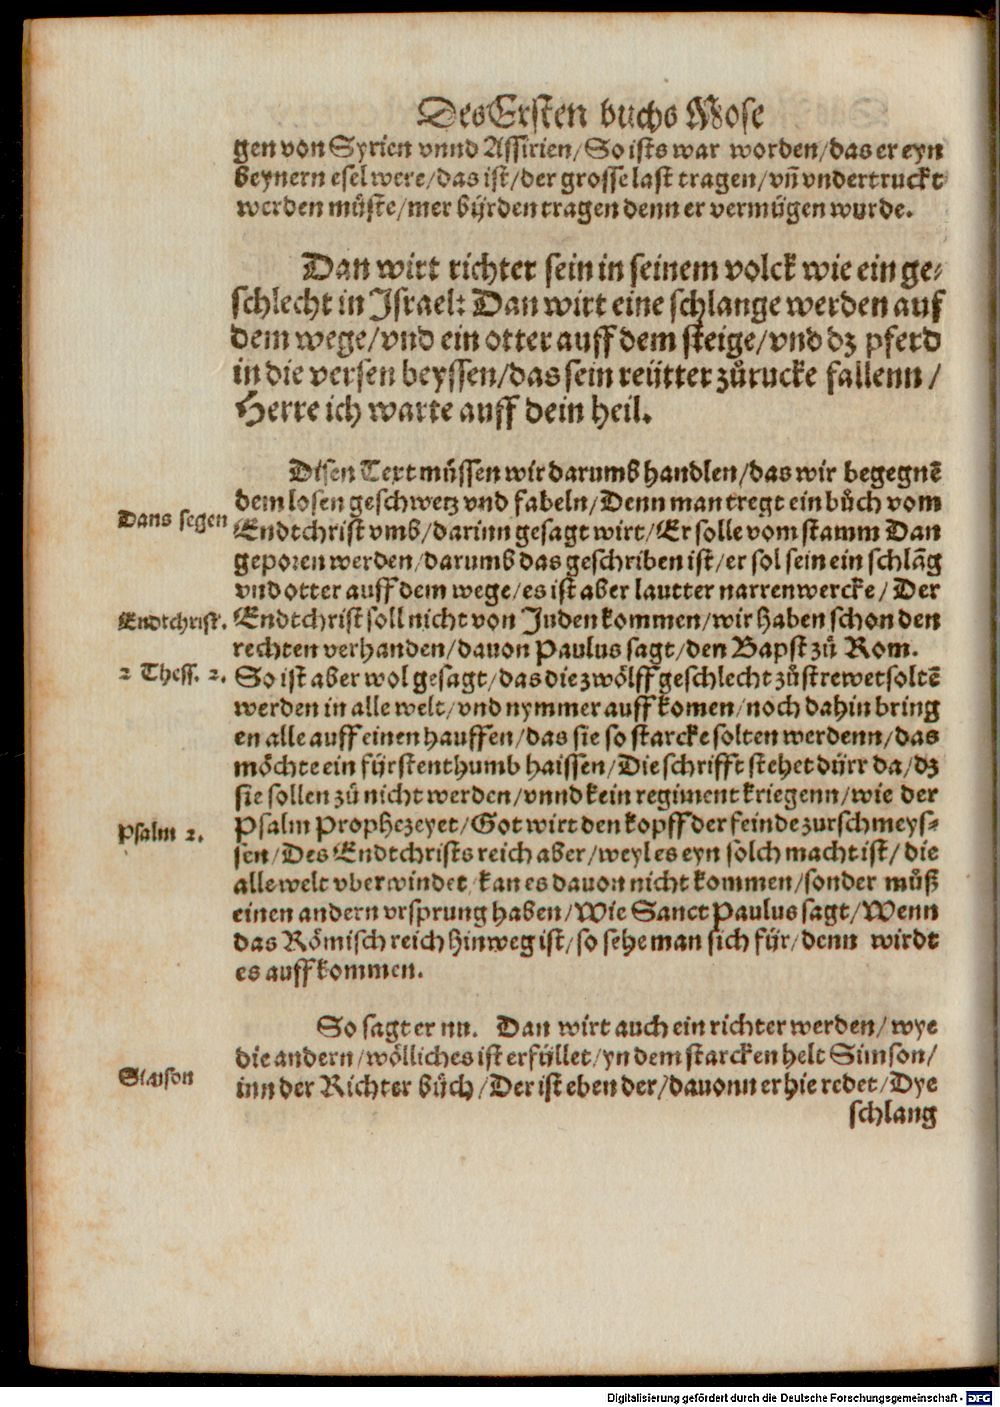 Des Ersten buchs Mose
gen von Syrien vnnd Assirien/ So ists war worden/ das er eyn
beynern esel were/ das ist/ der grosse last tragen/ vñ vndertruckt
werden müste/ mer bÿrden tragen denn er vermügen wurde.
Dan wirt richter sein in seinem volck wie ein ge⸗
schlecht in Israel: Dan wirt eine schlange werden auf
dem wege/ vnd ein otter auff dem steige/ vnd dz pferd
in die versen beyssen/ das sein reütter zůrucke fallenn/
Herre ich warte auff dein heil.
Disen Text müssen wir darumb handlen/ das wir begegnẽ
dem losen geschwetz vnd fabeln/ Denn man tregt ein bůch vom
Dans segen
Endtchrist vmb/ darinn gesagt wirt/ Er solle vom stamm Dan
geporen werden/ darumb das geschriben ist/ er sol sein ein schlãg
vnd otter auff dem wege/ es ist aber lautter narrenwercke/ Der
Endtchrist.
Endtchrist soll nicht von Juden kommen/ wir haben schon den
rechten verhanden/ dauon Paulus sagt/ den Bapst zů Rom.
2 Thess. 2.
So ist aber wol gesagt/ das die zwölff geschlecht zůstrewet soltẽ
werden in alle welt/ vnd nymmer auff komen/ noch dahin bring
en alle auff einen hauffen/ das sie so starcke solten werdenn/ das
möchte ein fÿrstenthumb haissen/ Die schrifft stehet dÿrr da/ dz
sie sollen zů nicht werden/ vnnd kein regiment kriegenn/ wie der
Psalm 2.
Psalm Prophezeyet/ Got wirt den kopff der feinde zurschmeys⸗
sen/ Des Endtchrists reich aber/ weyl es eyn solch macht ist/ die
alle welt vberwindet/ kan es dauon nicht kommen/ sonder můß
einen andern vrsprung haben/ Wie Sanct Paulus sagt/ Wenn
das Römisch reich hinweg ist/ so sehe man sich fÿr/ denn wirdt
es auff kommen.
So sagt er nu. Dan wirt auch ein richter werden/ wye
die andern/ wölliches ist erfÿllet/ yn dem starcken helt Simson/
Simson
inn der Richter bůch/ Der ist eben der/ dauonn er hie redet/ Dye
schlang
Digitalisierung gefördert durch die Deutsche Forschungsgemeinschaft - DFG